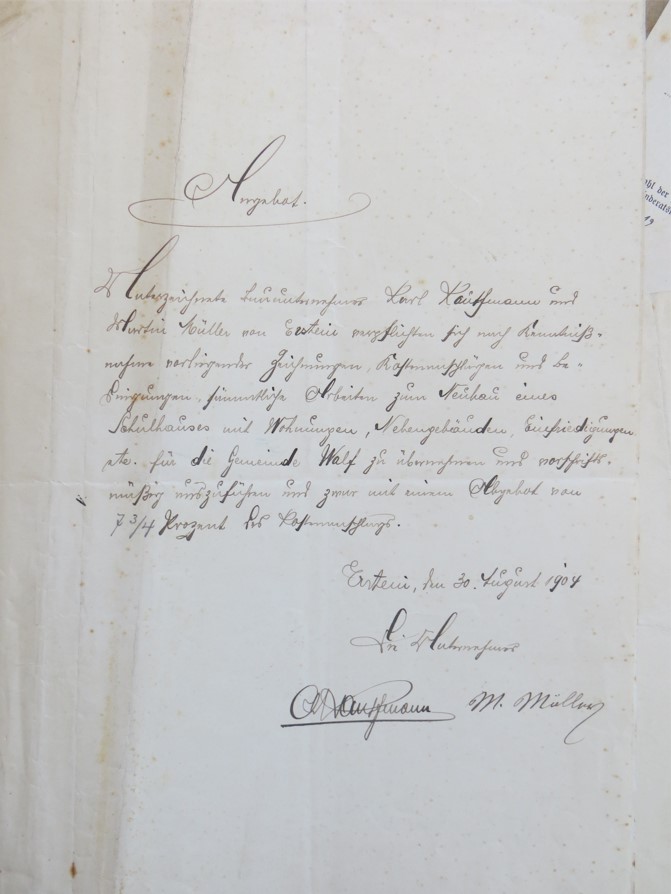 Angebot.
Unterzeichnete Bauunternehmer Karl Kauffmann und
Martin Müller von Erstein verpflichten sich nach Kenntniß-
nahme vorliegender Zeichnungen, Kostenanschlägen und Be-
dingungen, sämmtliche Arbeiten zum Neubau eines
Schulhauses mit Wohnungen, Nebengebäuden, Einfriedigungen
etc. für die Gemeinde Walf zu übernehmen und vorschrifts-
mäßig auszuführen und zwar mit einem Abgebot von
7 3/4 Prozent des Kostenanschlags.
Erstein, den 30. August 1904
Die Unternehmer
Kauffmann M. Müller
ahl der
19